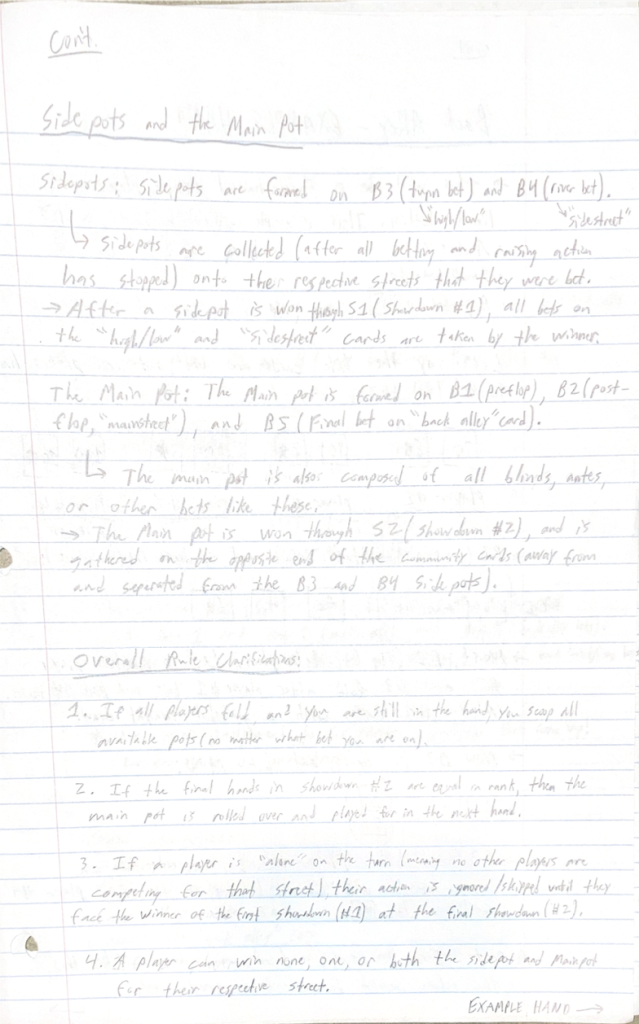 Con't.
Side pots and the Main Pot
Sidepots: Sidepots are formed on B3 (turn bet) and B4 (river bet).
"high/low" "sidestreet"
↳ Sidepots are collected (after all betting and raising action
has stopped) onto the respective streets that they were bet.
→ After a sidepot is won through S1 (showdown #1), all bets on
the "high/low" and "sidestreet" cards are taken by the winner.
The Main Pot: The Main pot is formed on B1 (preflop), B2 (post-
flop, "mainstreet"), and B5 (Final bet on "back alley" card).
↳ The main pot is also composed of all blinds, antes,
or other bets like these.
→ The Main pot is won through S2 (showdown #2), and is
gathered on the opposite end of the community cards (away from
and separated from the B3 and B4 side pots).
Overall Rule Clarifications:
1. If all players fold, and you are still in the hand, you scoop all
available pots (no matter what bet you are on).
2. If the final hands in showdown #2 are equal in rank, then the
main pot is rolled over and played for in the next hand.
3. If a player is "alone" on the turn (meaning no other players are
competing for that street), their action is ignored/skipped until they
face the winner of the first showdown (#1) at the final showdown (#2).
4. A player can win none, one, or both the sidepot and Mainpot
for their respective street.
EXAMPLE HAND →